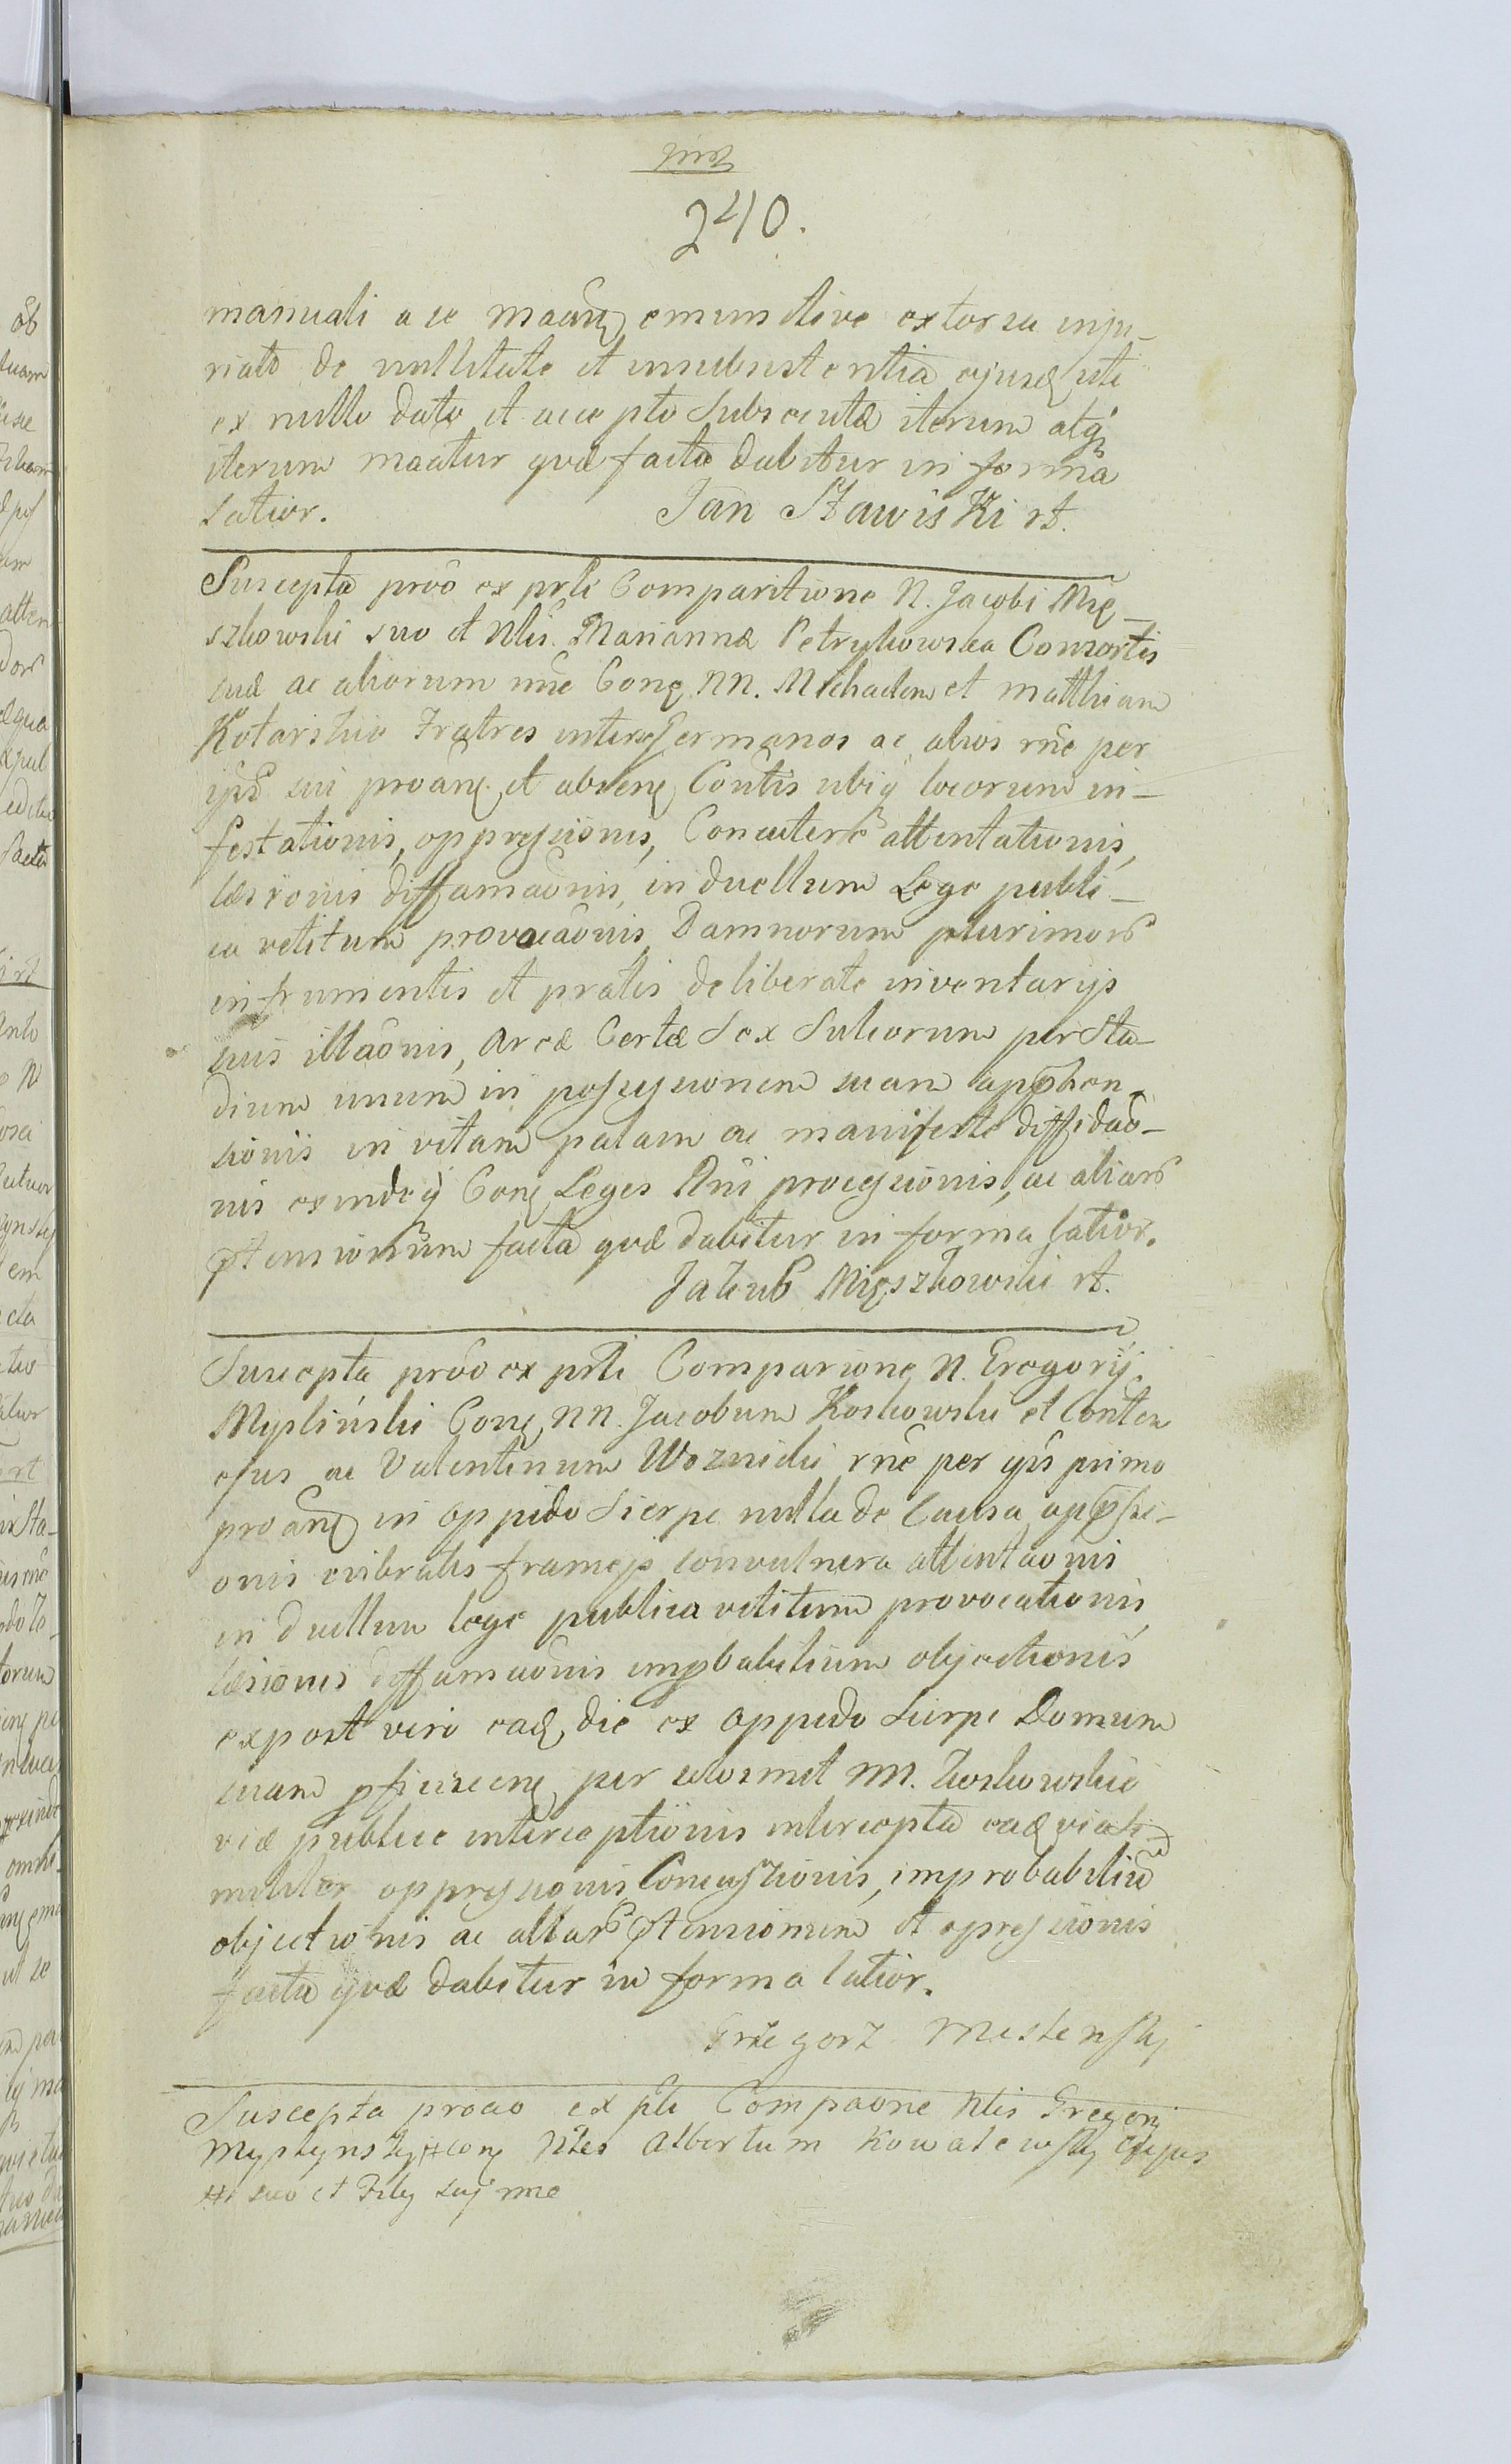 240.
manuali a se maõnę emunctive extorsa inju-
riato de nullitate et insubsistentia ejusq uti
ex nullo dato et accepto subsecutæ iterum atqꝫ
iterum maãtur quæ facta dabitur in forma
latior. Jan Stawiski rt.
Suscepta prõo ex prti Comparitione N. Jacobi Mię-
szkowski suo et Nlis. Mariannæ Petrykowska Consortis
suæ ac aliorum nnẽ Conę NN. Michaelem et Matthiam
Kotarskie Fratres inter se Germanos ac alios rñe per
ipsõ sui proanę et absenę Contis ubiqꝫ locorum in-
festationis, oppressionis, Concuterẽ attentationis,
læsionis diffamaõnis, in duellum Lege publi-
ca vetitum provocaõnis, Damnorum plurimorũ
in frumentis et pratis deliberate inventarijs
suis illaõnis, Areæ Certæ Sex Sulcorum per Sta-
dium unum in possessionem suam appꝛhen-
sionis in vitam palam ac manifeste diffidaõ-
nis exindeqꝫ Conę Leges Rñi processionis, ac aliarũ
ptensionum facta quæ dabitur in forma latior.
Jakub Mięszkowski rt.
Suscepta prõo ex prti Comparione N. Gregorij
Mysliński Conę NN. Jacobum Koskowski et Conten
ejus ac Valentinum Woznicki rñe per ipš primo
proanę in oppido Sierpc nulla de Causa
onis evibratis framejs convulnera attentaonis
in duellum lege publica vetitum provocationis,
læsionis diffamaõnis impbabilium objectionis
expost vero eadę die ex oppido Sierpc Domum
suam pficiscenę per eosmet NN. Koskowskie
viæ publicæ interceptionis intercepta eaq viali
militer oppressionis Concussionis, improbabiliũ
objectionis ac aliarũ ptensionum et opressionis
facta quæ dabitur in forma latior.
Grzegorz Meslenskij
Suscepta proao ex pti Compaone Nlis Gregorij
Myslynskij # Conę Nles Albertum Kowalewskij ejus
# suo et Filij suj nne